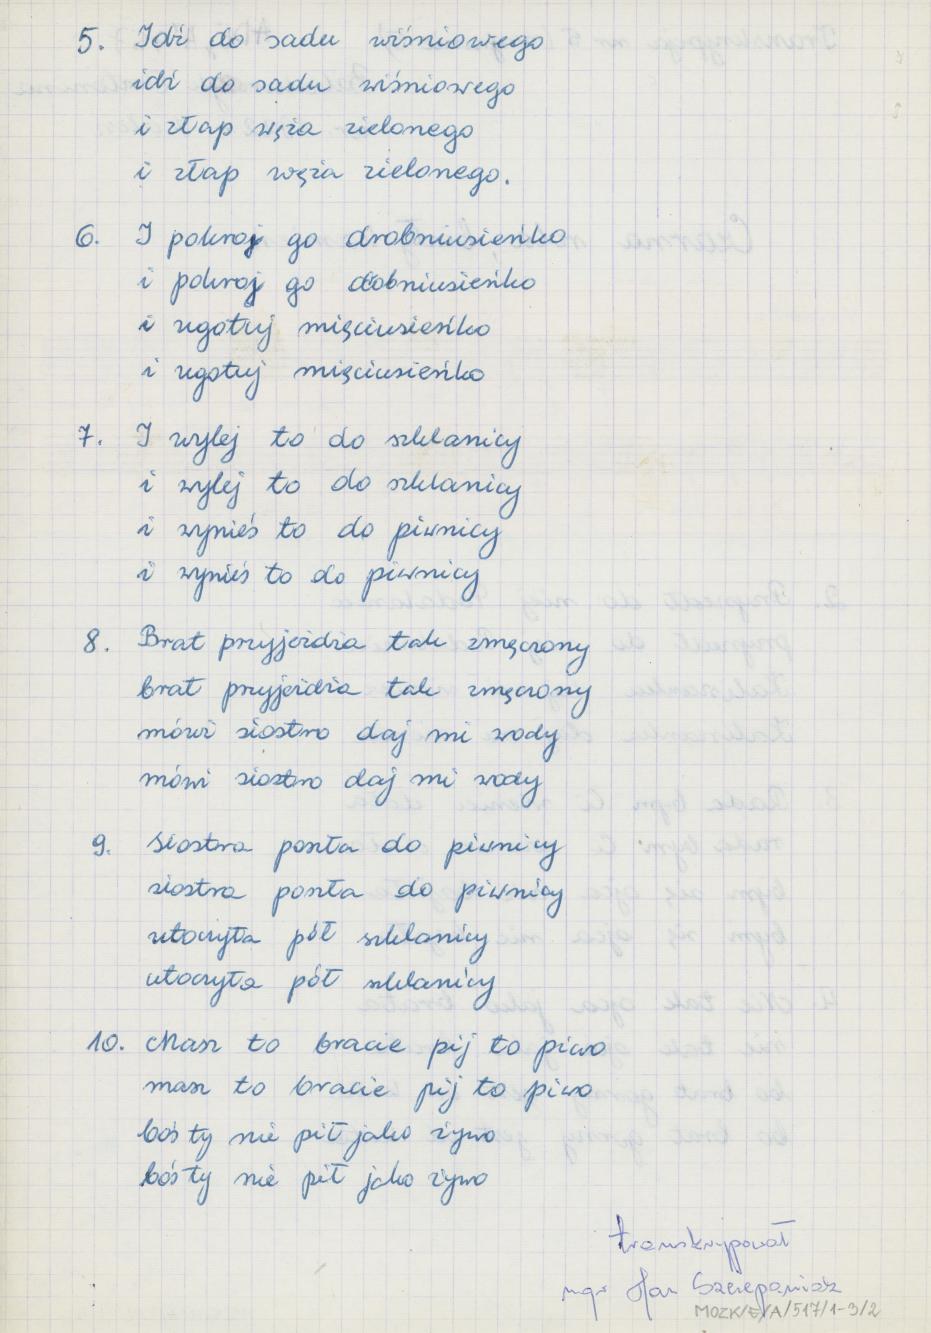 5. Idź do sadu wiśniowego
idź do sadu wiśniowego
i złap węża zielonego
i złap węża zielonego.
6. I pokroj go drobniusieńko
i pokroj go dobniusieńko
i ugotuj mięciusieńko
i ugotuj mięciusieńko
7. I wylej to do szklanicy
i wylej to do szklanicy
i wynieś to do piwnicy
i wynieś to do piwnicy
8. Brat przyjeżdża tak zmęczony
brat przyjeżdża tak zmęczony
mówi siostro daj mi wody
mówi siostro daj mi wody
9. Siostra poszła do piwnicy
siostra poszła do piwnicy
utoczyła pół szklanicy
utoczyła pół szklanicy
10. Masz to bracie pij to piwo
masz to bracie pij to piwo
boś ty nie pił jako żywo
boś ty nie pił jako żywo
transkrypował
mgr Jan Szczepaniak
MOZK/E/A/517/1-3/2